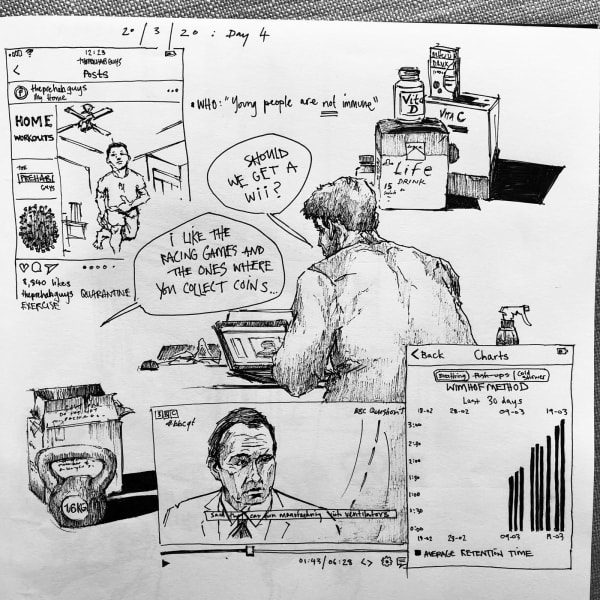 20/3/20 : Day 4
12:23
THEPREHABGUYS
Posts
theprehabguys
My Home
HOME
WORKOUTS
THE
PREHAB
GUYS
8,840 likes
theprehabguys QUARANTINE
EXERCISE
• WHO: "Young people are not immune"
SHOULD
WE GET A
Wii?
I LIKE THE
RACING GAMES AND
THE ONES WHERE
YOU COLLECT COINS...
Vit
D
VITA C
Life
DRINK
15
16KG
BBC
#bbcqt
BBC Question T
said they can run manufacturing with ventilators
01:43/06:28
< Back
Charts
Breathing
Push-ups
Cold shower
WIM HOF METHOD
Last 30 days
18-02 28-02 09-03 19-03
3:00
2:30
2:00
1:30
1:00
0:30
0:00
18-02 28-02 09-03 19-03
AVERAGE RETENTION TIME